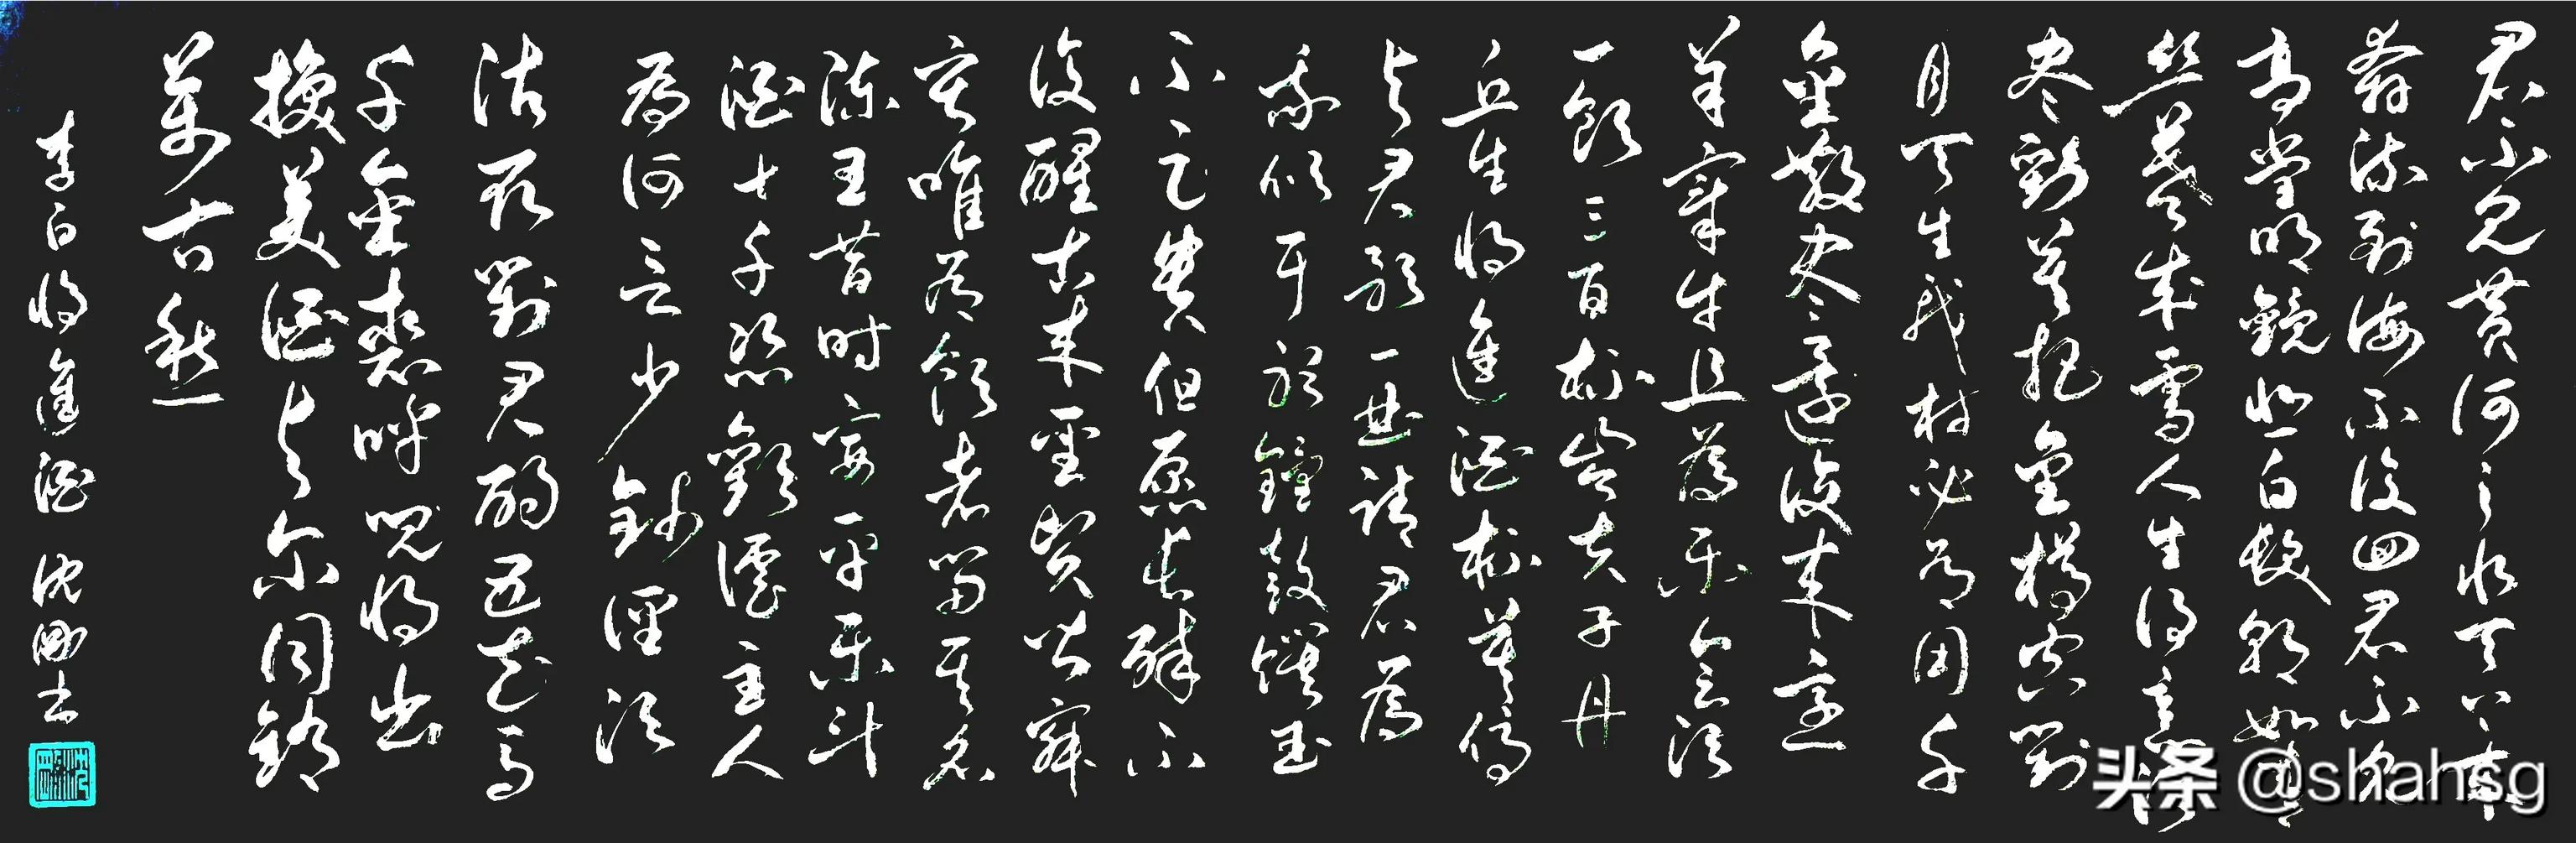 君不见黄河之水天上来
奔流到海不復回君不见
高堂明鏡悲白髮朝如青
丝暮成雪人生得意须
尽歡莫把金樽空對
月天生我材必有用千
金散尽還復来烹
羊宰牛且為乐会须
一飲三百杯岑夫子丹
丘生将進酒杯莫停
与君歌一曲請君為
我倾耳听鐘鼓馔玉
不足贵但愿长醉不
復醒古来聖贤皆寂
寞唯有飲者留其名
陈王昔时宴平乐斗
酒十千恣歡谑主人
為何言少钱径须
沽取對君酌五花馬
千金裘呼兒将出
換美酒与尔同銷
萬古愁
李白将進酒 沈刚书
头条 @shahsg